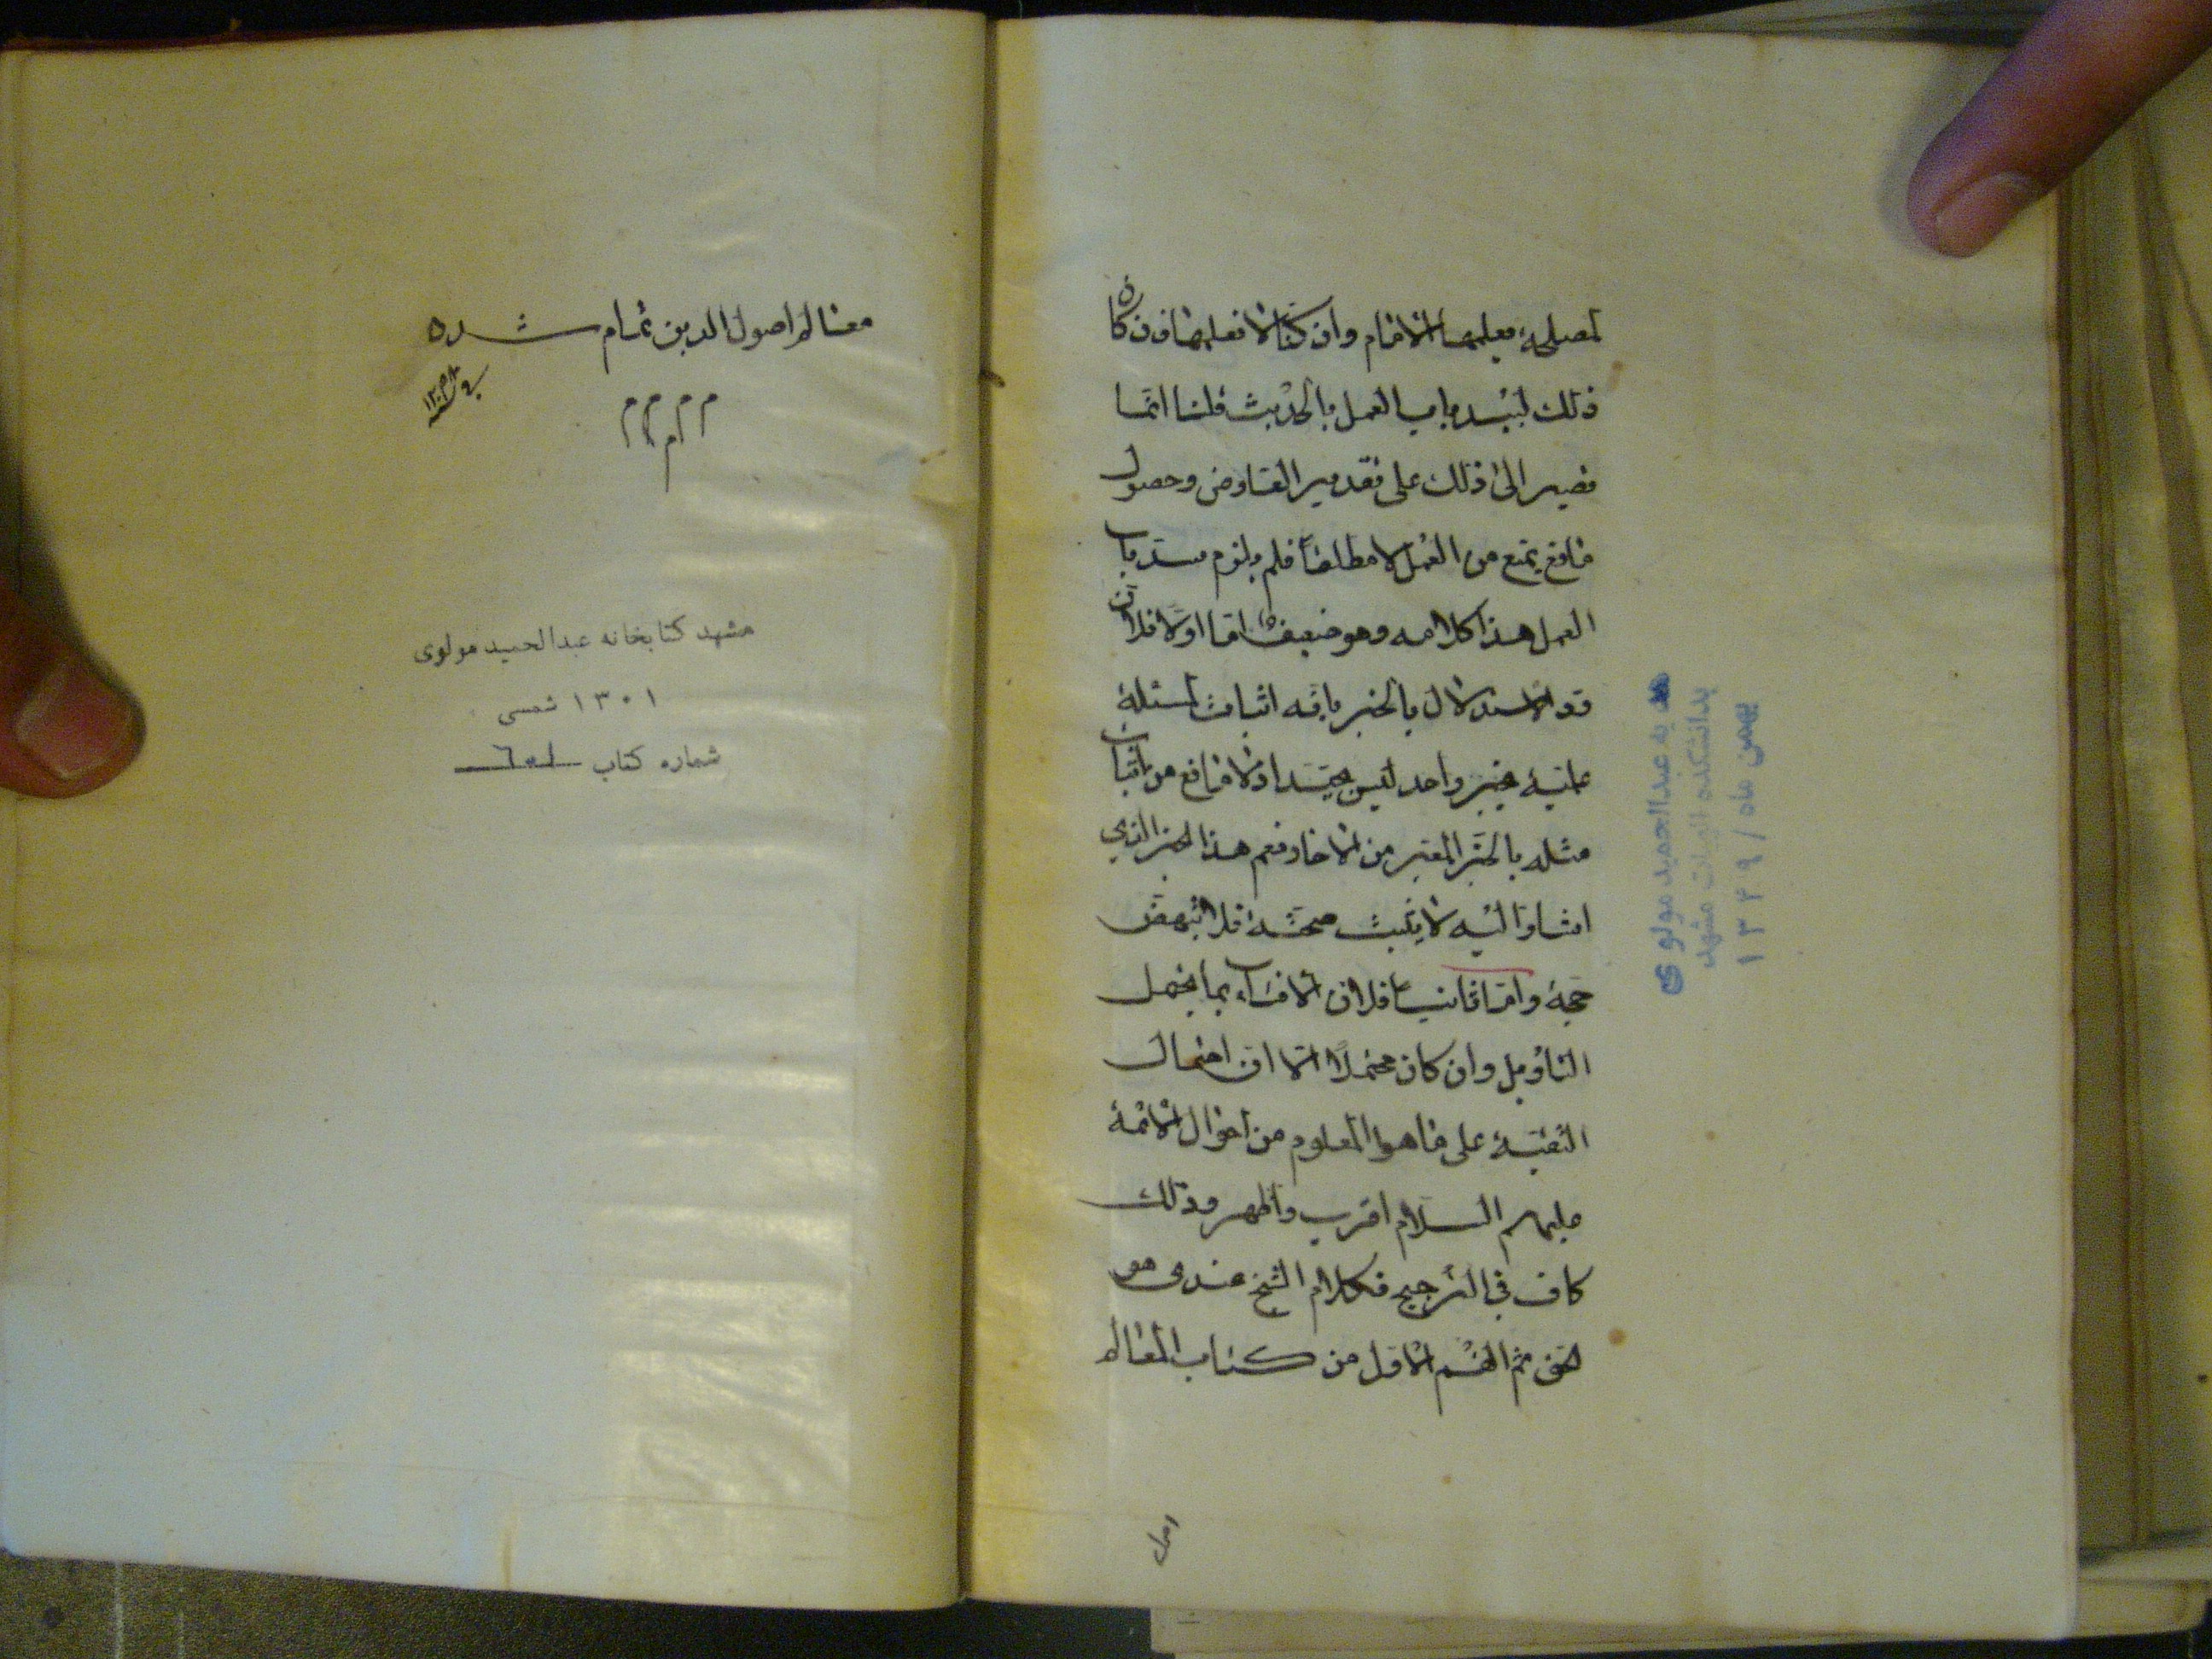 لمصلحة يعلمها الامام وان كنا لا نعلمها فان كان
ذلك ليسد باب العمل بالحديث قلنا انما
نصير الى ذلك على تقدير التعارض وحصول
مانع يمنع من العمل لا مطلقا فلم يلزم سد باب
العمل هذا كلامه وهو ضعيف اما اولا فلان
رد الاستدلال بالخبر بانه اثبات لمسئلة
علمية بخبر واحد ليس بجيد اذ لا مانع من اثبات
مثله بالخبر المعتبر من الاحاد ونعم هذا الخبر الذي
اشار اليه لا يثبت صحته فلا ينهض
حجة واما ثانيا فلان الافتاء بما يحتمل
التاويل وان كان محتملا الا ان احتمال
التقية على ما هو المعلوم من احوال الائمة
عليهم السلام اقرب واظهر وذلك
كاف في الترجيح فكلام الشيخ عندى هو
الحق تم القسم الاول من كتاب المعالم
اصل
به عبدالحمید مولوی
بدانشکده الهیات مشهد
بهمن ماه / ۱۳۴۹
معالم اصول الدين تمام شده
م م م م م م
مشهد کتابخانه عبدالحمید مولوی
۱۳۰۱ شمسی
شماره کتاب ٦٠١